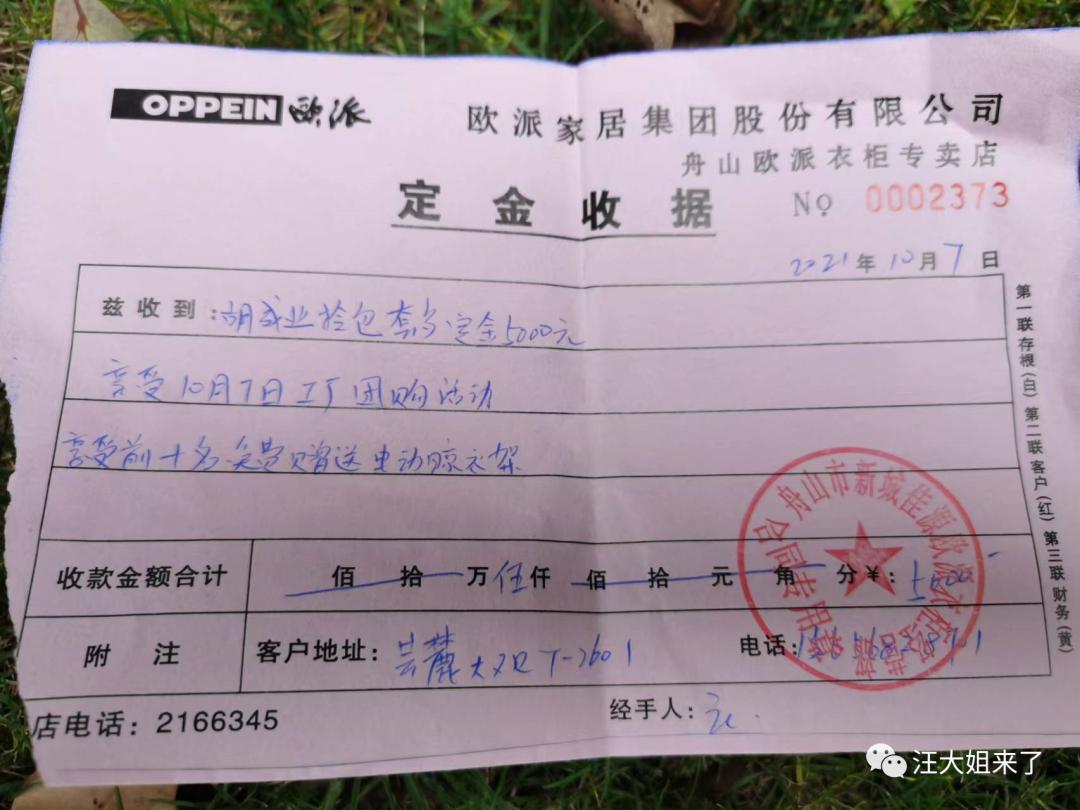 OPPEIN 欧派
欧派家居集团股份有限公司
舟山欧派衣柜专卖店
定金收据
No 0002373
2021年10月7日
兹收到:胡成业拎包套餐定金5000元
享受10月7日工厂团购活动
享受前十名免费赠送电动晾衣架
收款金额合计 佰 拾 万伍仟 佰 拾 元 角 分¥: 5000
附 注 客户地址: 大双 7-2601 电话:
店电话: 2166345 经手人:
第一联存根(白) 第二联客户(红) 第三联财务(黄)
舟山市新城佳源欧派衣柜
合同专用章
汪大姐来了